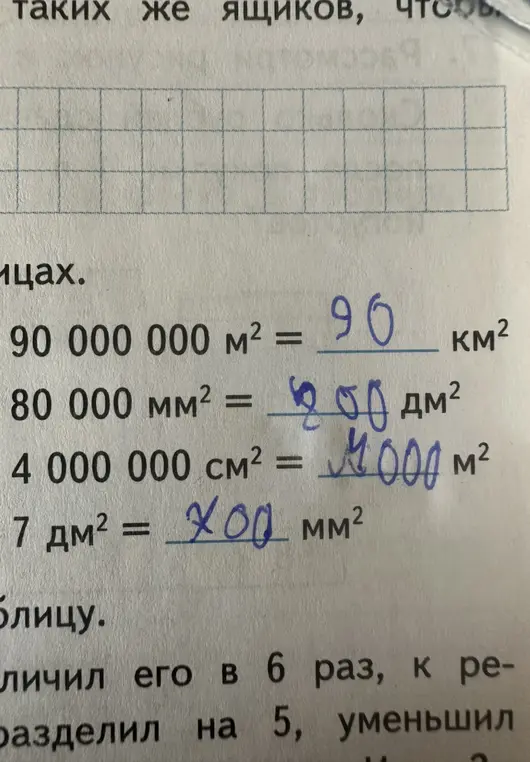 таких же ящиков, чтобы
ицах.
90 000 000 м² = 90 км²
80 000 мм² = 800 дм²
4 000 000 см² = 4000 м²
7 дм² = 700 мм²
блицу.
личил его в 6 раз, к ре-
разделил на 5, уменьшил